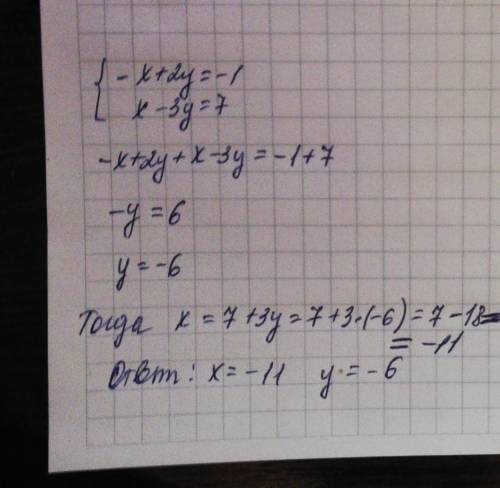 - x+2y=-1
x-3y=7
-x+2y+x-3y=-1+7
-y=6
y=-6
Тогда x=7+3y=7+3·(-6)=7-18=
=-11
Ответ: x=-11 y=-6